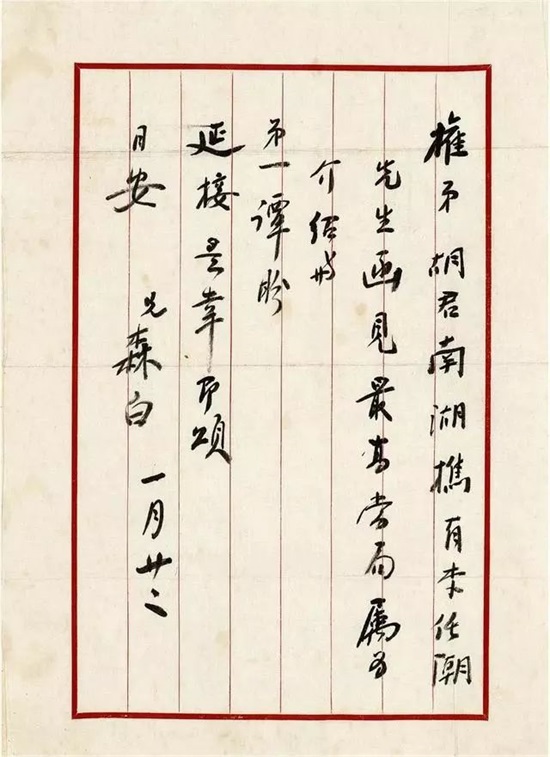 權弟 胡君南湖擕有李任潮
先生函見最高當局屬為
介紹
弟一譚盼
延接是幸即頌
日安 兄森白 一月廿二